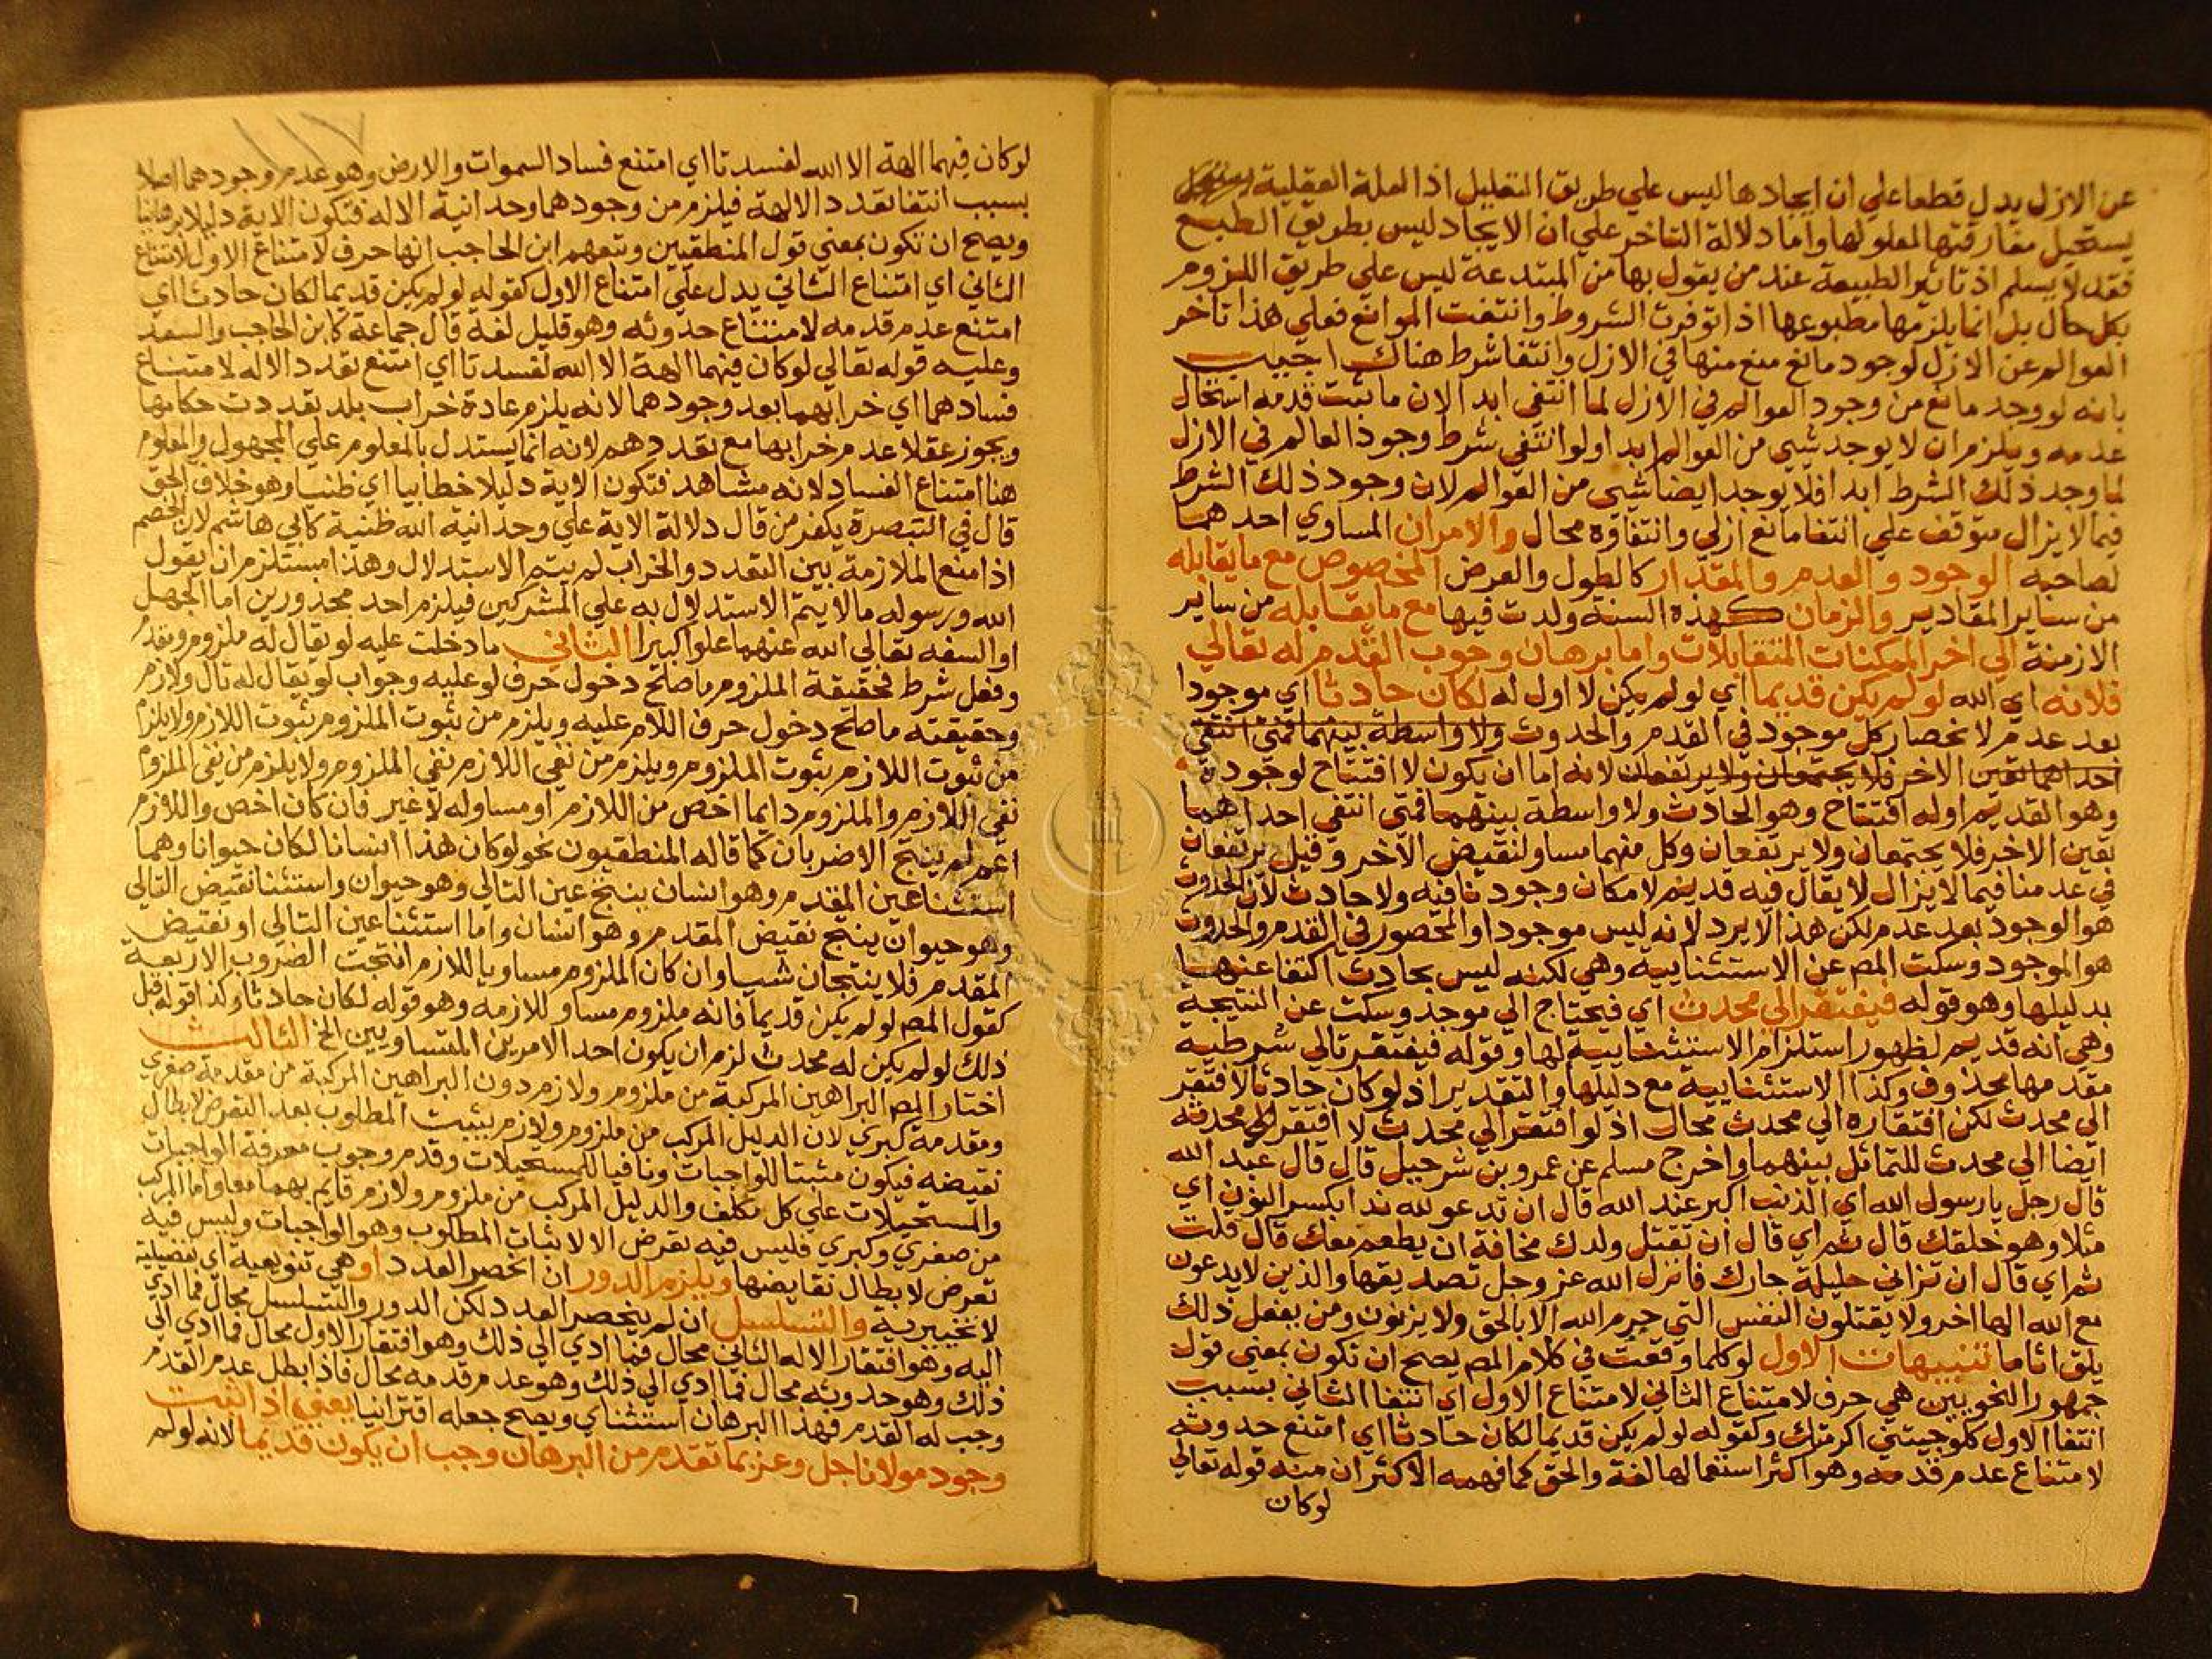 عن الازل يدل قطعا علي ان ايجادها ليس علي طريق التعليل اذ العلة العقلية
يستحيل مفارقتها لمعلولها واما دلالة التاخر علي ان الايجاد ليس بطريق الطبع
فقد لا يسلم اذ تاثير الطبيعة عند من يقول بها من المبتدعة ليس علي طريق اللزوم
بكل حال بل انما يلزمها مطبوعها اذا توفرت الشروط وانتفت الموانع فعلي هذا تاخر
العوالم عن الازل لوجود مانع منع منها في الازل وانتفا شرط هناك اجيب
بانه لو وجد مانع من وجود العوالم في الازل لما انتفي ابدا لان ما ثبت قدمه استحال
عدمه ويلزم ان لا يوجد شي من العوالم ابدا ولو انتفي شرط وجود العالم في الازل
لما وجد ذلك الشرط ابدا فلا يوجد ايضا شي من العوالم لان وجود ذلك الشرط
فيما لا يزال متوقف علي انتفا مانع ازلي وانتفاوه محال والامران المساوي احدهما
لصاحبه الوجود والعدم والمقدار كالطول والعرض المخصوص مع ما يقابله
من ساير المقادير والزمان كهذه السنة ولدت فيها مع ما يقابله من ساير
الازمنة الي اخر الممكنات المتقابلات واما برهان وجوب القدم له تعالي
فلانه اي الله لو لم يكن قديما اي لو لم يكن لا اول له لكان حادثا اي موجودا
بعد عدم لانحصار كل موجود في القدم والحدوث ولا واسطة بينهما فمتي انتفي
احداهما تعين الاخر فلا يجتمعان ولا يرتفعان لانه اما ان يكون لا افتتاح لوجوده
وهو القديم او له افتتاح وهو الحادث ولا واسطة بينهما فمتي انتفي احداهما
تعين الاخر فلا يجتمعان ولا يرتفعان وكل منهما مساو لنقيض الاخر وقيل يرتفعان
في عدمنا فيما لا يزال لا يقال فيه قديم لامكان وجودنا فيه ولا حادث لان الحدوث
هو الوجود بعد عدم لكن هذا لا يرد لانه ليس موجودا والمحصور في القدم والحدوث
هو الموجود وسكت المص عن الاستثنايية وهي لكنه ليس بحادث اكتفا عنها
بدليلها وهو قوله فيفتقر الي محدث اي فيحتاج الي موجد وسكت عن النتيجة
وهي انه قديم لظهور استلزام الاستثنايية لها وقوله فيفتقر تالي شرطية
مقدمها محذوف وكذا الاستثنايية مع دليلها والتقدير اذ لو كان حادثا لافتقر
الي محدث لكن افتقاره الي محدث محال اذ لو افتقر الي محدث لافتقر الي محدثه
ايضا الي محدث للتماثل بينهما واخرج مسلم عن عمرو بن شرحبيل قال قال عبد الله
قال رجل يا رسول الله اي الذنب اكبر عند الله قال ان تدعو لله ندا بكسر النون اي
مثلا وهو خلقك قال ثم اي قال ان تقتل ولدك مخافة ان يطعم معك قال قلت
ثم اي قال ان تزاني حليلة جارك فانزل الله عز وجل تصديقها والذين لا يدعون
مع الله الها اخر ولا يقتلون النفس التي حرم الله الا بالحق ولا يزنون ومن يفعل ذلك
يلق اثاما تنبيهات الاول لو كلما وقعت في كلام المص يصح ان تكون بمعني قول
جمهور النحويين هي حرف لامتناع الثاني لامتناع الاول اي انتفا الثاني بسبب
انتفا الاول كلو جيتني اكرمتك وكقوله لو لم يكن قديما لكان حادثا اي امتنع حدوثه
لامتناع عدم قدمه وهو اكثر استعمالها لغة والحق كما فهمه الاكثر ان منه قوله تعالي
لو كان
لو كان فيهما الهة الا الله لفسدتا اي امتنع فساد السموات والارض وهو عدم وجودهما اصلا
بسبب انتفا تعدد الالهة فيلزم من وجودهما وحدانية الاله فتكون الاية دليلا برهانيا
ويصح ان تكون بمعني قول المنطقيين وتبعهم ابن الحاجب انها حرف لامتناع الاول لامتناع
الثاني اي امتناع الثاني يدل علي امتناع الاول كقوله لو لم يكن قديما لكان حادثا اي
امتنع عدم قدمه لامتناع حدوثه وهو قليل لغة قال جماعة كابن الحاجب والسعد
وعليه قوله تعالي لو كان فيهما الهة الا الله لفسدتا اي امتنع تعدد الاله لامتناع
فسادهما اي خرابهما بعد وجودهما لانه يلزم عادة خراب بلد تعددت حكامها
ويجوز عقلا عدم خرابها مع تعددهم لانه انما يستدل بالمعلوم علي المجهول والمعلوم
هنا امتناع الفساد لانه مشاهد فتكون الاية دليلا خطابيا اي ظنيا وهو خلاف الحق
قال في التبصرة يكفر من قال دلالة الاية علي وحدانية الله ظنية كابي هاشم لان الخصم
اذا منع الملازمة بين التعدد والخراب لم يتم الاستدلال وهذا مستلزم ان يقول
الله ورسوله ما لا يتم الاستدلال به علي المشركين فيلزم احد محذورين اما الجهل
او السفه تعالي الله عنهما علوا كبيرا الثاني ما دخلت عليه لو يقال له ملزوم ومقدم
وفعل شرط فحقيقة الملزوم ما صلح دخول حرف لو عليه وجواب لو يقال له تال ولازم
وحقيقته ما صلح دخول حرف اللام عليه ويلزم من ثبوت الملزوم ثبوت اللازم ولا يلزم
من ثبوت اللازم ثبوت الملزوم ويلزم من نفي اللازم نفي الملزوم ولا يلزم من نفي الملزوم
نفي اللازم والملزوم دايما اخص من اللازم او مساو له لا غير فان كان اخص واللازم
اعم لم ينتج الا ضربان كما قاله المنطقيون نحو لو كان هذا انسانا لكان حيوانا وهما
استثنا عين المقدم وهو انسان ينتج عين التالي وهو حيوان واستثنا نقيض التالي
وهو حيوان ينتج نقيض المقدم وهو انسان واما استثنا عين التالي او نقيض
المقدم فلا ينتجان شيا وان كان الملزوم مساويا للازم انتجت الضروب الاربعة
كقول المص لو لم يكن قديما فانه ملزوم مساو للازمه وهو قوله لكان حادثا وكذا قوله قبل
ذلك لو لم يكن له محدث لزم ان يكون احد الامرين المتساويين الخ الثالث
اختار المص البراهين المركبة من ملزوم ولازم دون البراهين المركبة من مقدمة صغري
ومقدمة كبري لان الدليل المركب من ملزوم ولازم يثبت المطلوب بعد التعرض لابطال
نقيضه فيكون مثبتا للواجبات ونافيا للمستحيلات وقدم وجوب معرفة الواجبات
والمستحيلات علي كل مكلف والدليل المركب من ملزوم ولازم قايم بهما معا واما المركب
من صغري وكبري فليس فيه تعرض الا لاثبات المطلوب وهو الواجبات وليس فيه
تعرض لابطال نقايضها ويلزم الدور ان انحصر العدد او هي تنويعية اي تفصيلية
لا تخييرية والتسلسل ان لم ينحصر العدد لكن الدور والتسلسل محال فما ادي
اليه وهو افتقار الاله الثاني محال فما ادي الي ذلك وهو افتقار الاول محال فما ادي الي
ذلك وهو حدوثه محال فما ادي الي ذلك وهو عدم قدمه محال فاذا بطل عدم القدم
وجب له القدم فهذا البرهان استثناي ويصح جعله اقترانيا يعني اذا ثبت
وجود مولانا جل وعز بما تقدم من البرهان وجب ان يكون قديما لانه لو لم